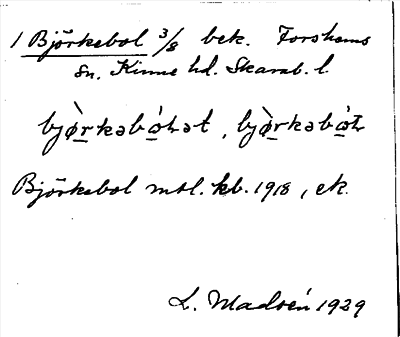 1 Björkebol 3/8 bek. Forshems
sn. Kinne hd. Skarab. l.
bjø̀rkəbó̱ɫət, bjø̀rkəbó̱ɫ
Björkebol mtl. kb. 1918, ek.
L. Madsén 1929